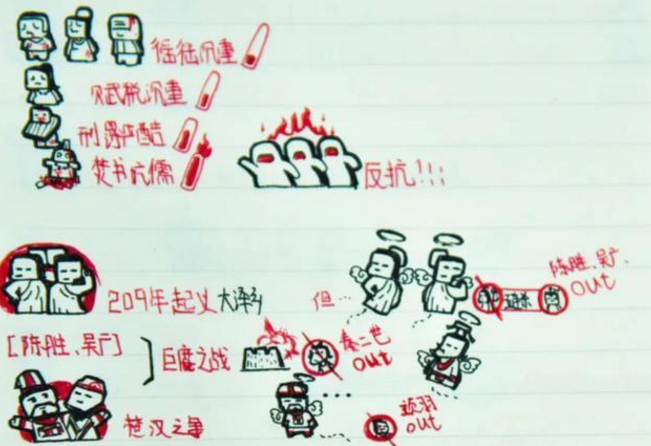 徭役沉重
赋税沉重
刑罚严酷
焚书坑儒
反抗!!!
209年起义 大泽乡
但…
陈胜、吴广
out
[陈胜、吴广]
巨鹿之战
秦二世
out
楚汉之争
项羽
out